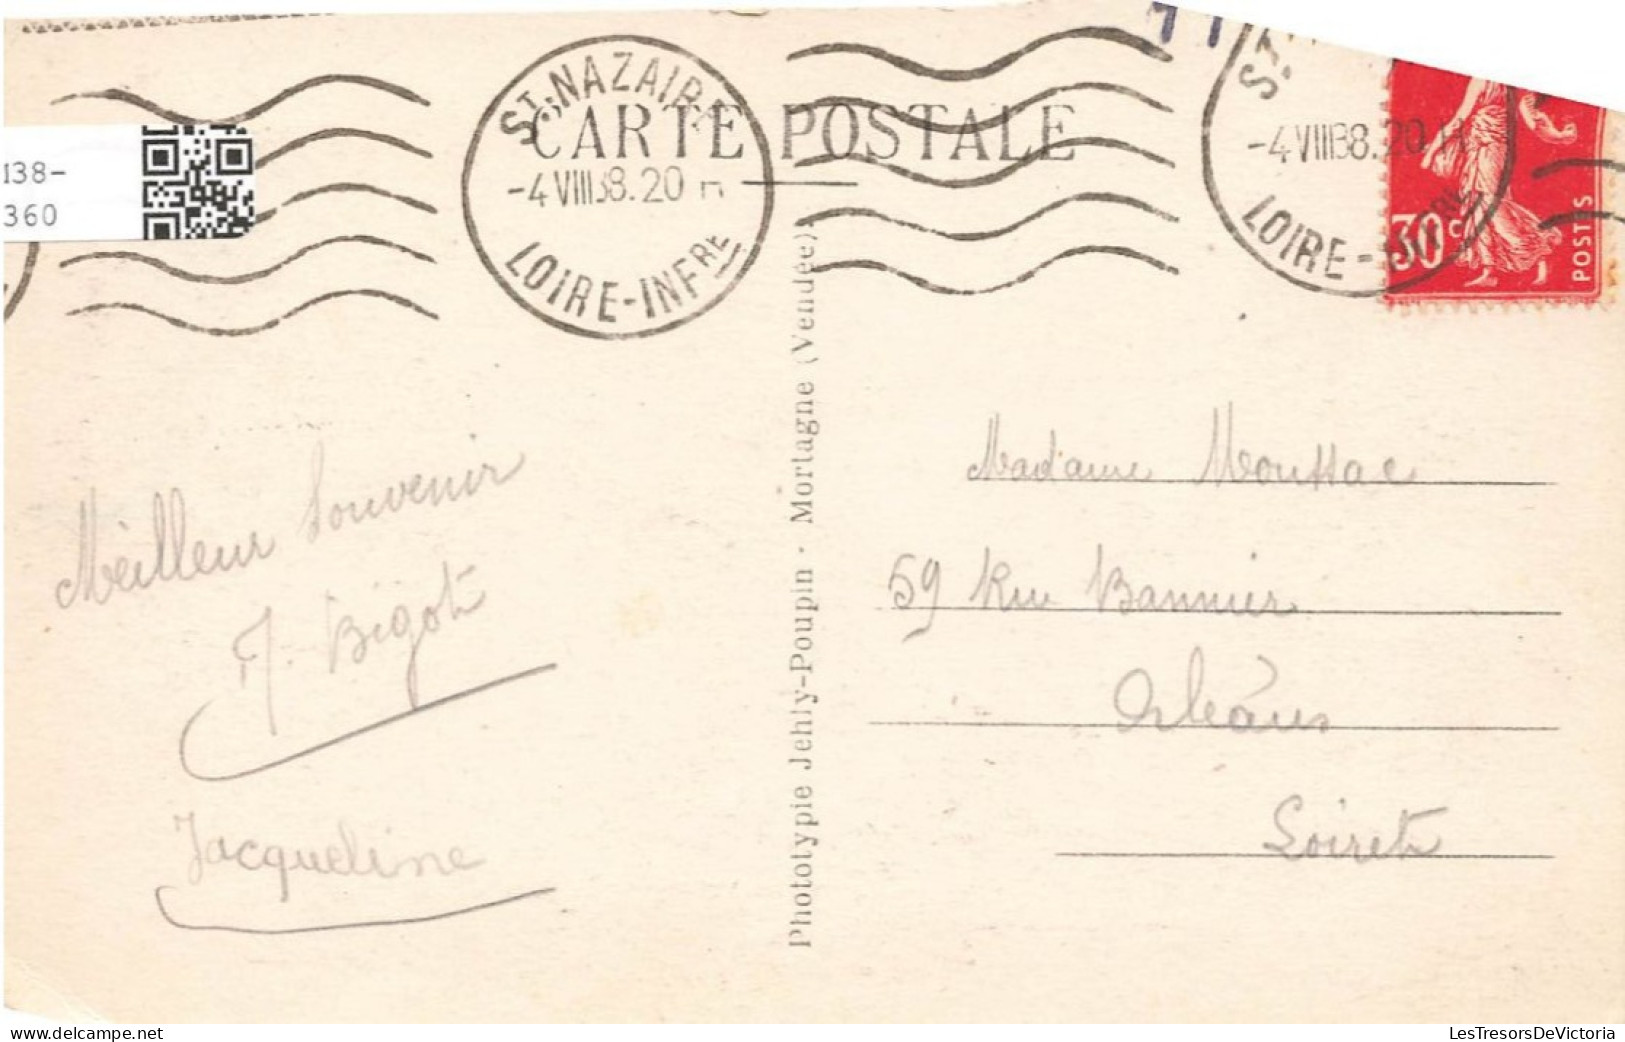 138-
360
ST. NAZAIRE
-4 VIII 38. 20 H
LOIRE-INFRE
CARTE POSTALE
ST.
-4 VIII 38. 20 H
LOIRE-INFRE
30c
POSTES
Meilleur Souvenir
Bigot
Jacqueline
Phototypie Jehly-Poupin - Mortagne (Vendée)
Madame Moussac
59 Rue Bannier
Orléans
Loiret
LesTresorsDeVictoria
delcampe.net